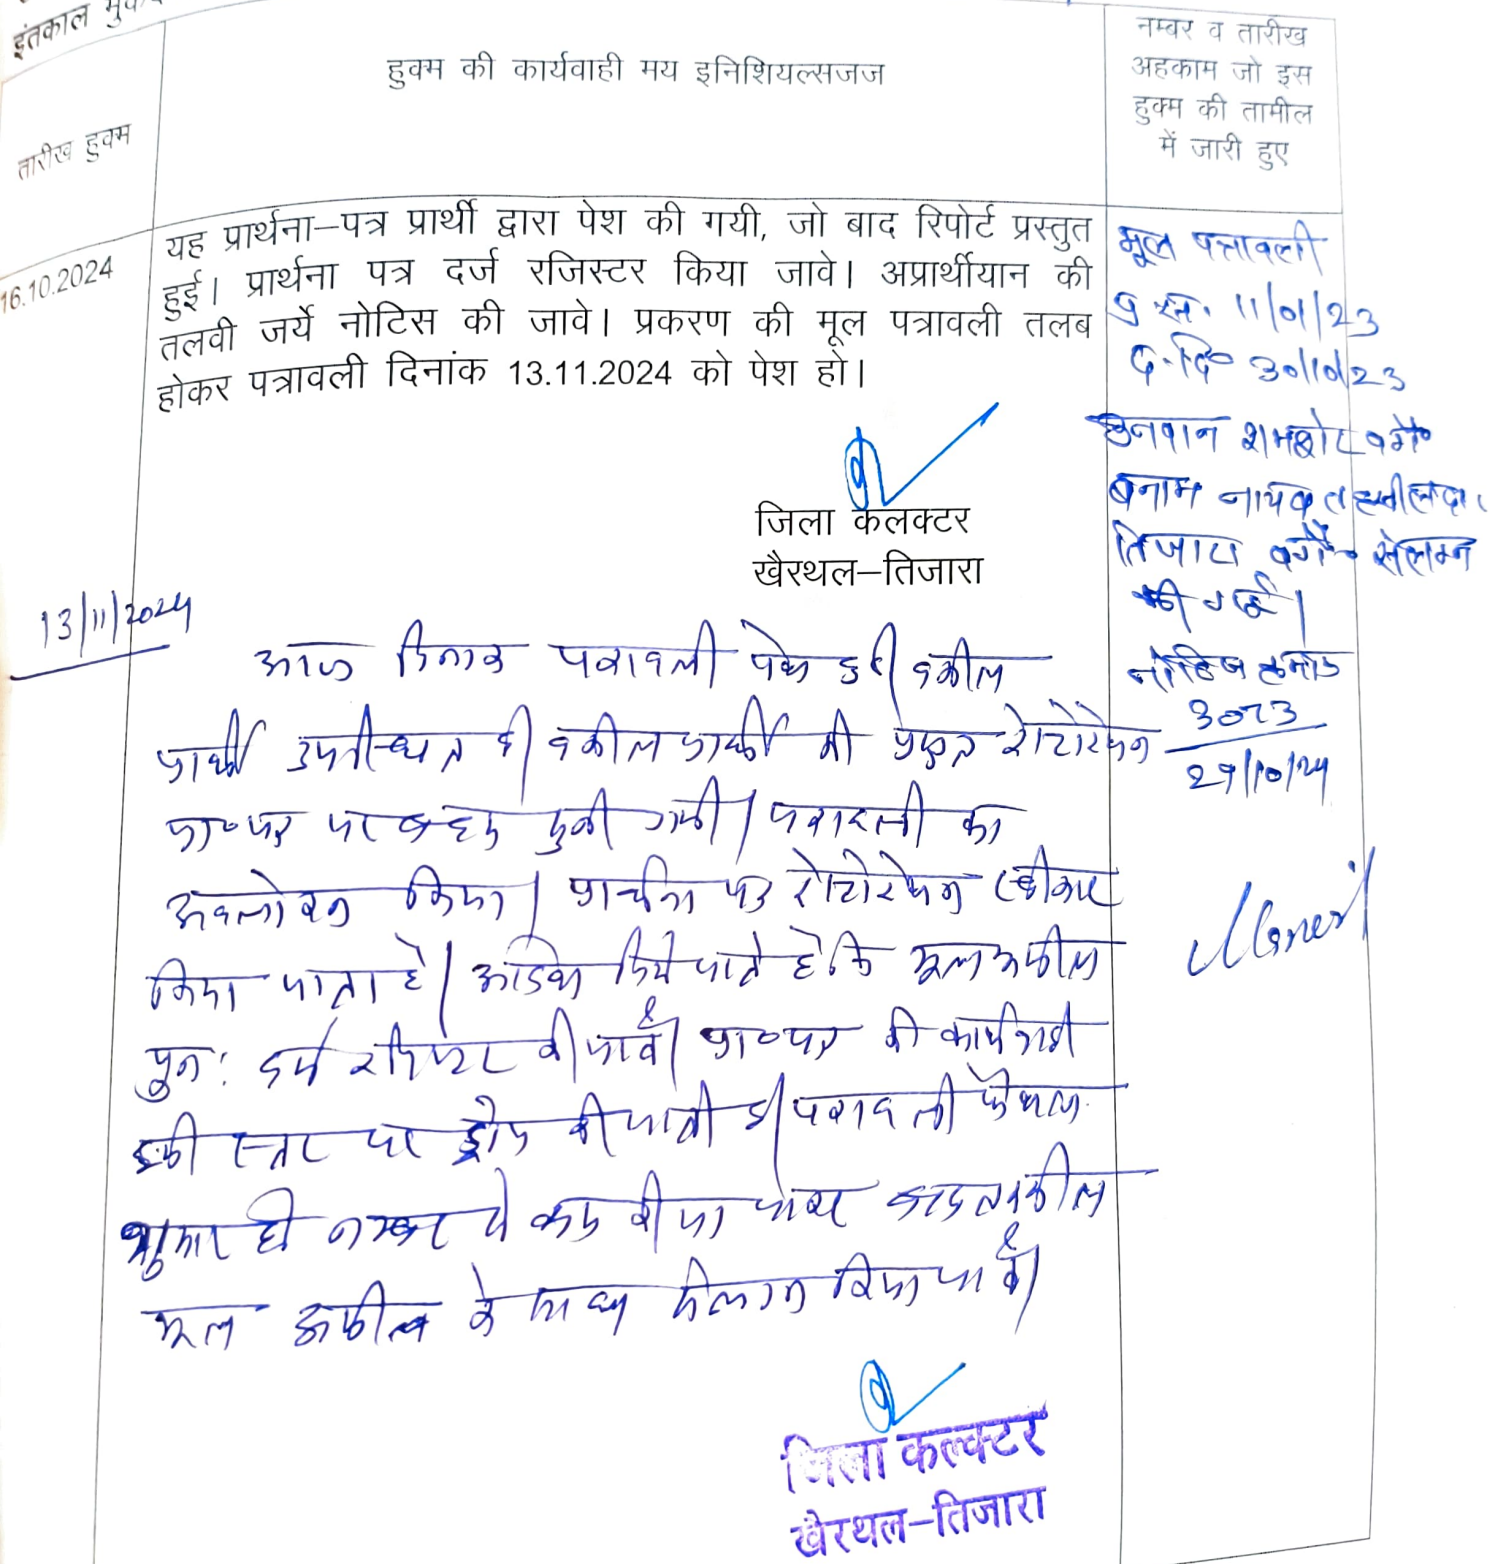 इंतकाल
तारीख हुक्म
हुक्म की कार्यवाही मय इनिशियल्सजज
नम्बर व तारीख
अहकाम जो इस
हुक्म की तामील
में जारी हुए
16.10.2024
यह प्रार्थना–पत्र प्रार्थी द्वारा पेश की गयी, जो बाद रिपोर्ट प्रस्तुत
हुई। प्रार्थना पत्र दर्ज रजिस्टर किया जावे। अप्रार्थीयान की
तलवी जर्ये नोटिस की जावे। प्रकरण की मूल पत्रावली तलब
होकर पत्रावली दिनांक 13.11.2024 को पेश हो।
जिला कलक्टर
खैरथल–तिजारा
मूल पत्रावली
11/01/23
द.दि० 30/10/23
उनवान
बनाम नायब तहसीलदार
तिजारा वगै० संलग्न
की गई।
नोटिस क्रमांक
3073
29/10/24
13/11/2024
आज दिनांक पत्रावली पेश हुई। वकील
प्रार्थी उपस्थित है। वकील प्रार्थी की प्रस्तुत रेस्टोरेशन
प्रा०पत्र पर बहस सुनी गयी। पत्रावली का
अवलोकन किया। प्रार्थना पत्र रेस्टोरेशन स्वीकार
किया जाता है। आदेश दिये जाते है कि मूल अपील
पुन: दर्ज रजिस्टर की जावें। प्रा०पत्र की कार्यवाही
इसी स्तर पर ड्रोप की जाती है। पत्रावली फैसल
शुमार हो नम्बर से कम की जा कर बाद तकमील
मूल अपील के साथ संलग्न किया जावें।
जिला कलक्टर
खैरथल–तिजारा